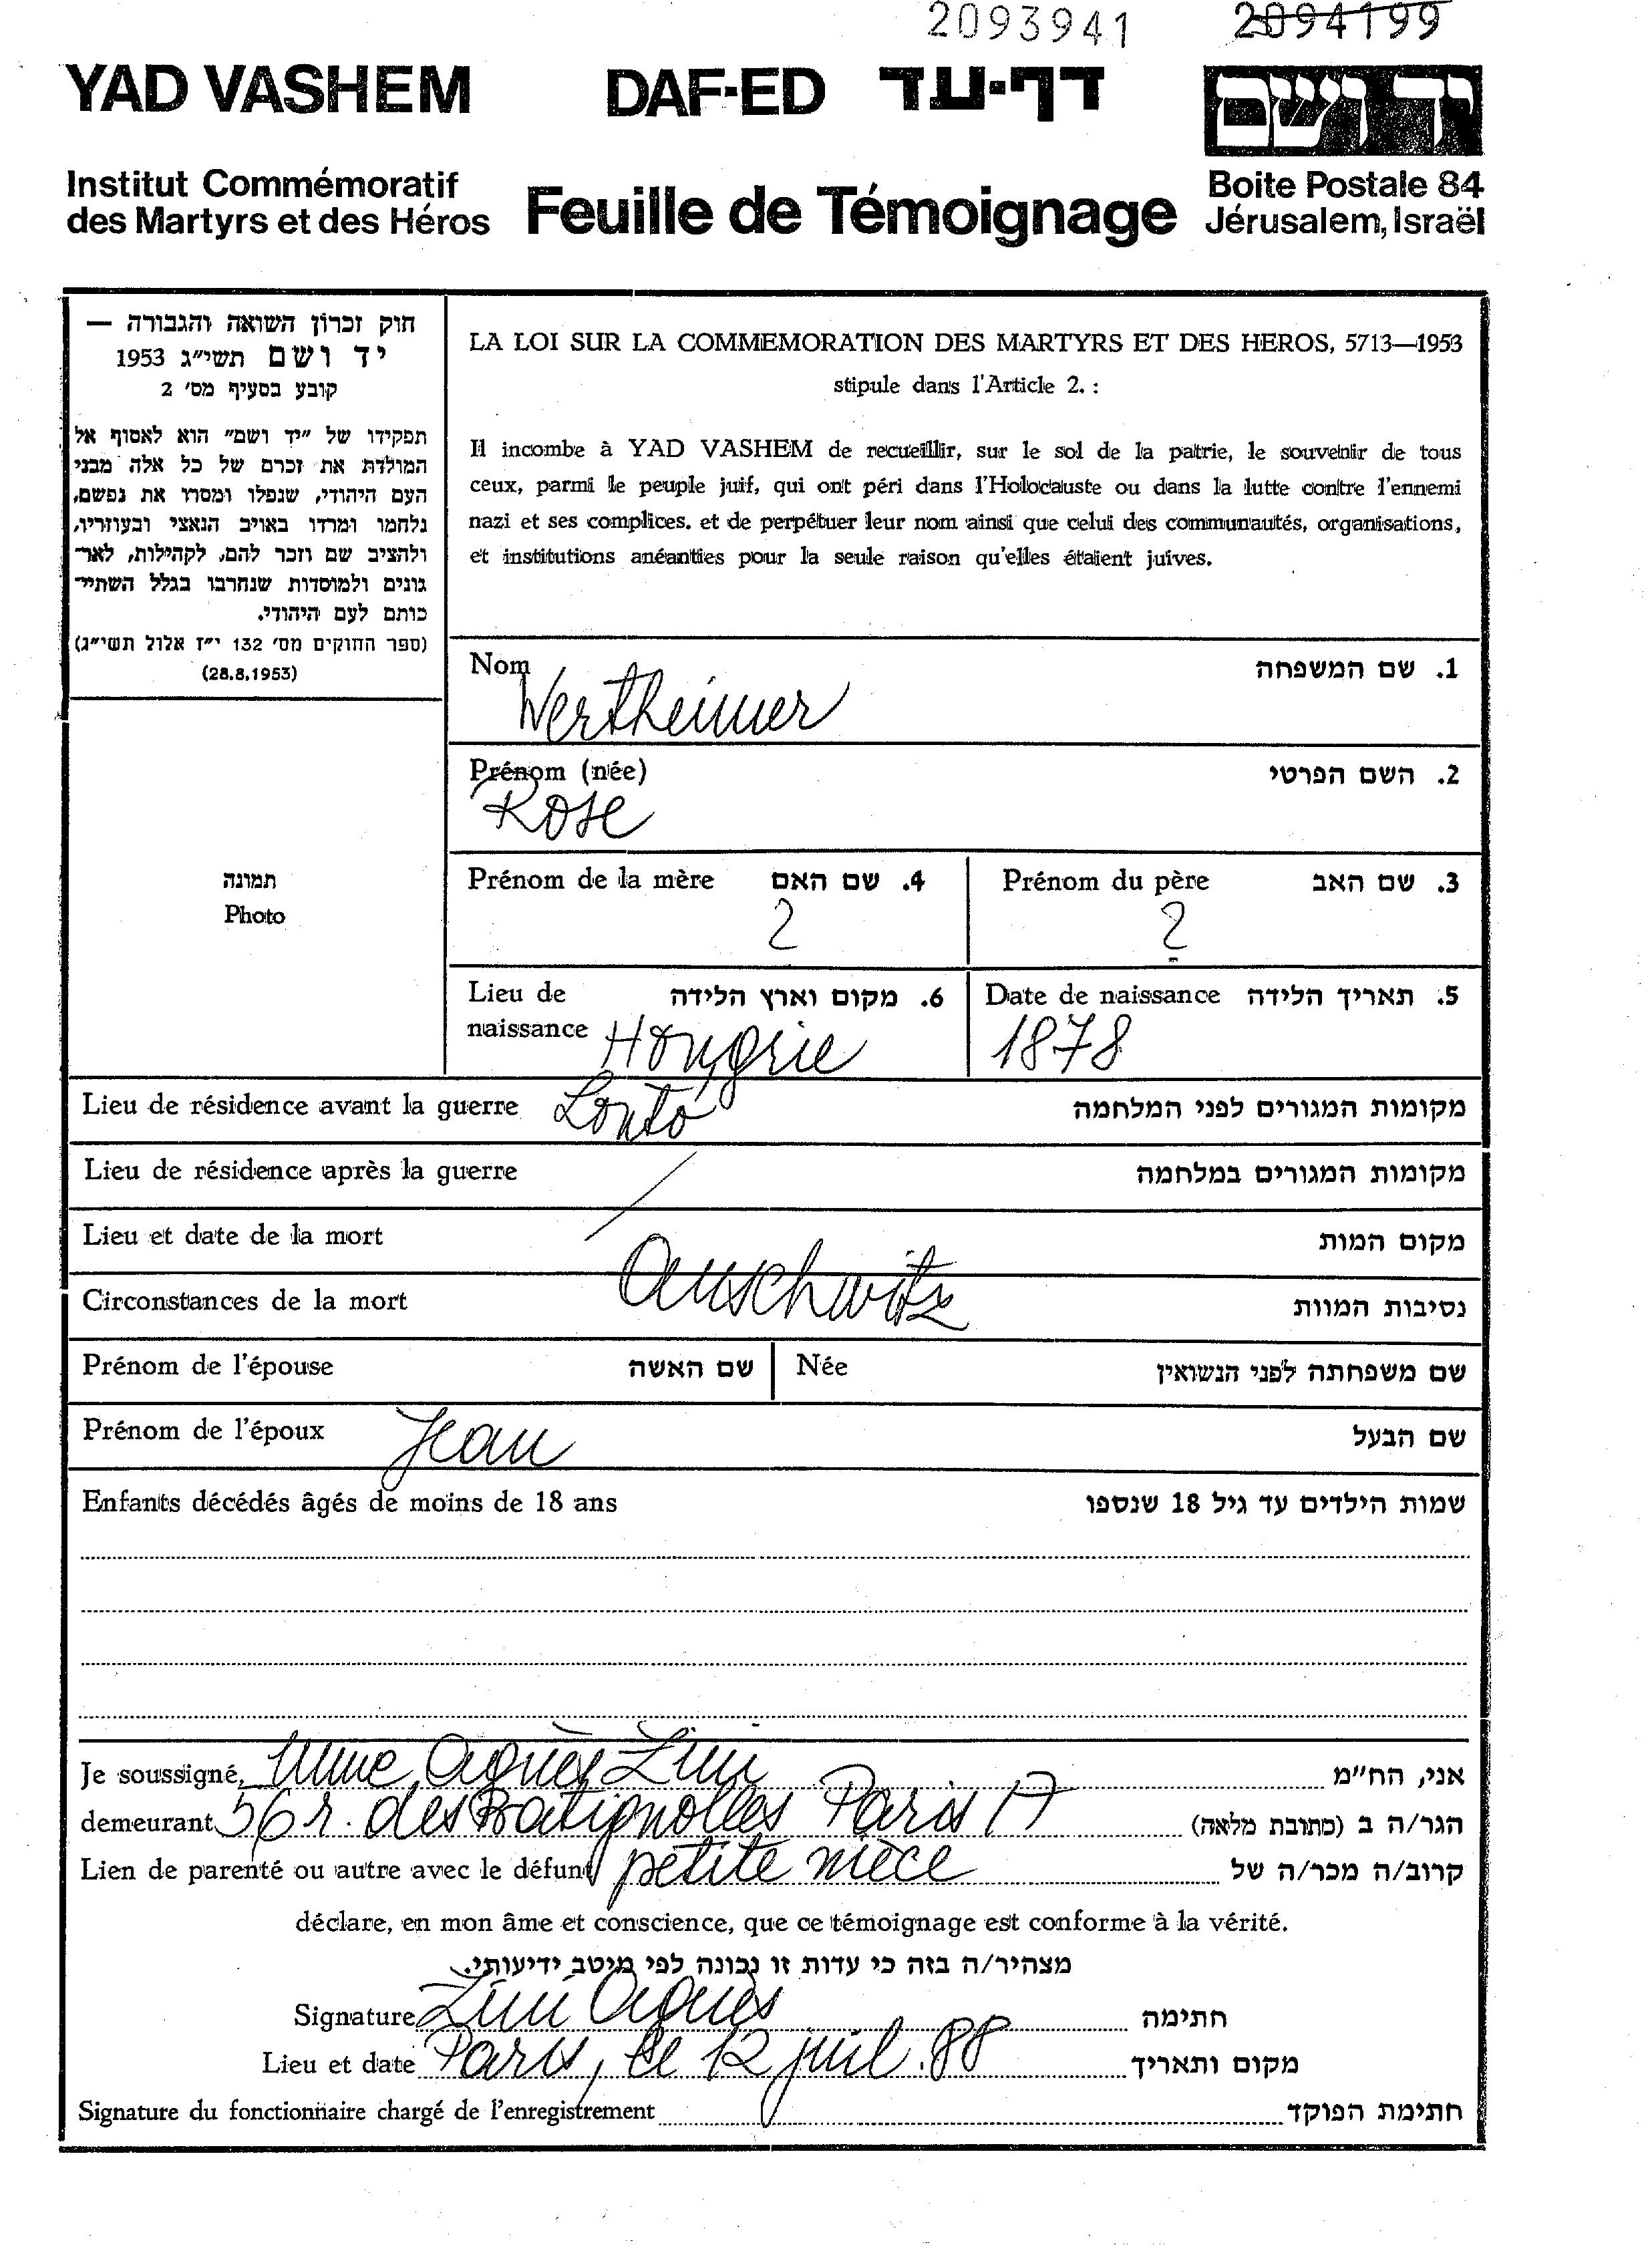 2093941 2094199
YAD VASHEM DAF-ED דף-עד יד ושם
Institut Commémoratif
des Martyrs et des Héros
Feuille de Témoignage
Boite Postale 84
Jérusalem, Israël
חוק זכרון השואה והגבורה —
יד ושם תשי״ג 1953
קובע בסעיף מס׳ 2
תפקידו של ״יד ושם״ הוא לאסוף אל
המולדת את זכרם של כל אלה מבני
העם היהודי, שנפלו ומסרו את נפשם,
נלחמו ומרדו באויב הנאצי ובעוזריו,
ולהציב שם וזכר להם, לקהילות, לאר־
גונים ולמוסדות שנחרבו בגלל השתיי־
כותם לעם היהודי.
(ספר החוקים מס׳ 132 י״ז אלול תשי״ג)
(28.8.1953)
תמונה
Photo
LA LOI SUR LA COMMEMORATION DES MARTYRS ET DES HEROS, 5713—1953
stipule dans l'Article 2. :
Il incombe à YAD VASHEM de recueillir, sur le sol de la patrie, le souvenir de tous
ceux, parmi le peuple juif, qui ont péri dans l'Holocauste ou dans la lutte contre l'ennemi
nazi et ses complices. et de perpétuer leur nom ainsi que celui des communautés, organisations,
et institutions anéanties pour la seule raison qu'elles étaient juives.
Nom 1. שם המשפחה
Wertheimer
Prénom (née) 2. השם הפרטי
Rose
Prénom de la mère 4. שם האם Prénom du père 3. שם האב
? ?
Lieu de 6. מקום וארץ הלידה Date de naissance 5. תאריך הלידה
naissance Hongrie 1878
Lieu de résidence avant la guerre Lontó מקומות המגורים לפני המלחמה
Lieu de résidence après la guerre מקומות המגורים במלחמה
Lieu et date de la mort מקום המות
Auschwitz
Circonstances de la mort נסיבות המוות
Prénom de l'épouse שם האשה Née שם משפחתה לפני הנשואין
Prénom de l'époux Jean שם הבעל
Enfants décédés âgés de moins de 18 ans שמות הילדים עד גיל 18 שנספו
Je soussigné, Mme Agnès אני, הח״מ
demeurant 56 r. des Batignolles Paris 17 הגר/ה ב (כתובת מלאה)
Lien de parenté ou autre avec le défunt petite nièce קרוב/ה מכר/ה של
déclare, en mon âme et conscience, que ce témoignage est conforme à la vérité.
מצהיר/ה בזה כי עדות זו נכונה לפי מיטב ידיעותי.
Signature Agnès חתימה
Lieu et date Paris, le 12 juil. 88 מקום ותאריך
Signature du fonctionnaire chargé de l'enregistrement חתימת הפוקד